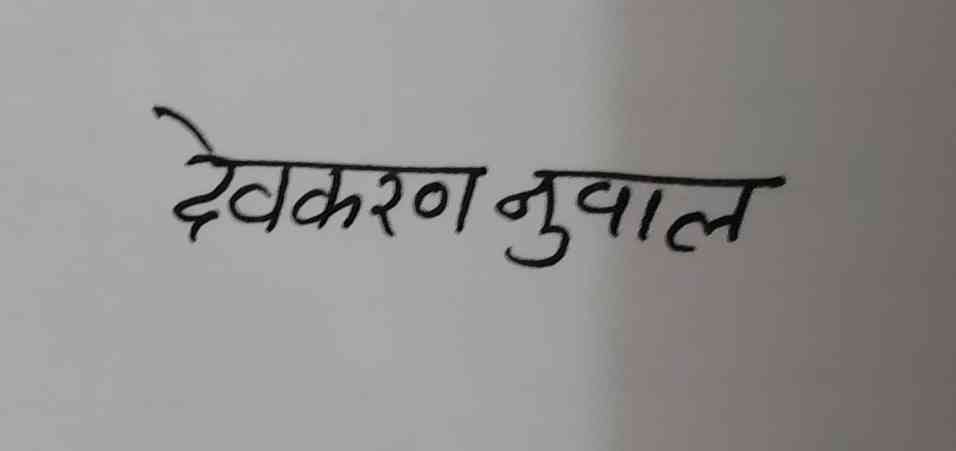 देवकरण नुवाल